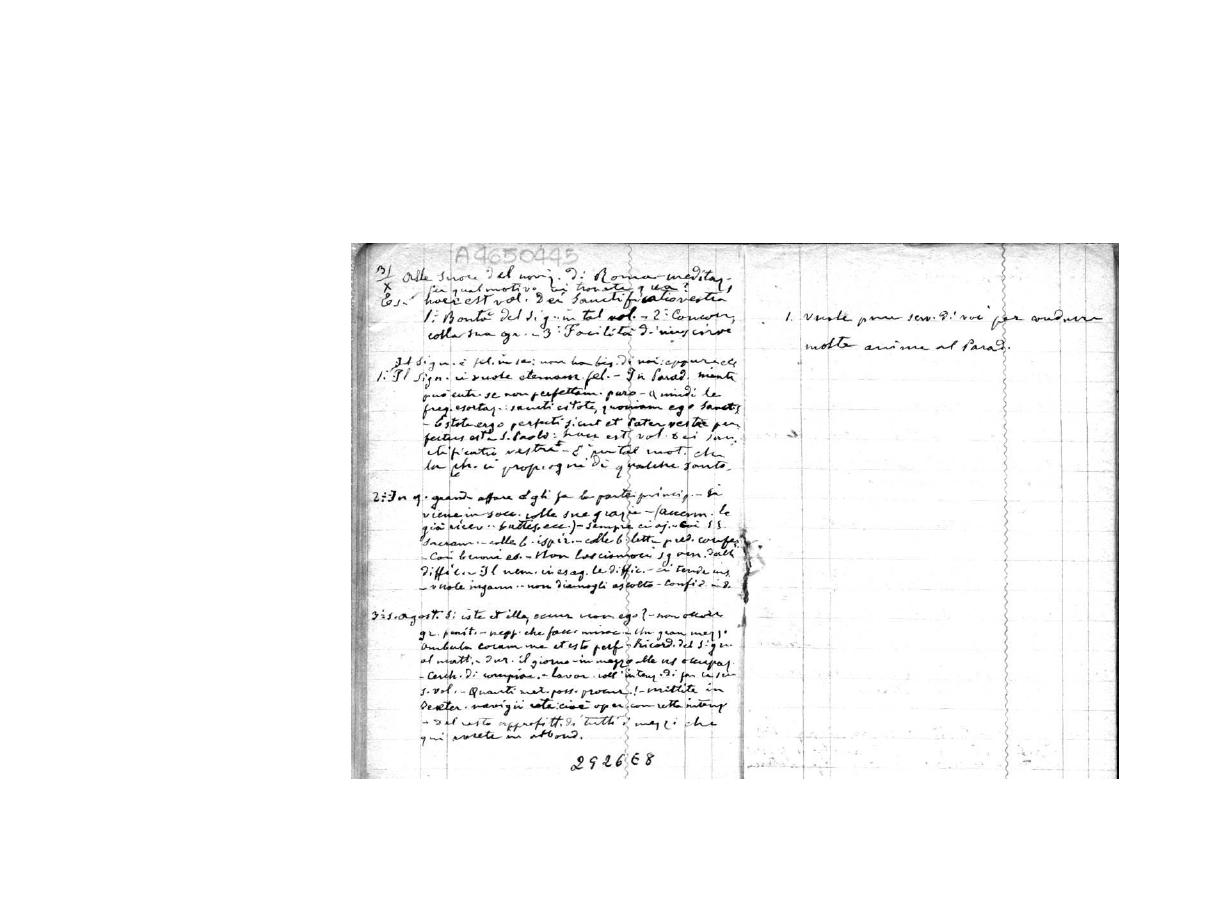 A4650445
13/X Alle suore del noviz. di Roma - meditaz.
Per qual motivo vi trovate qua?
Es. haec est vol. Dei sanctificatio vestra
1.° Bontà del Sig. in tal vol. - 2.° Concorr.
colla sua gr. - 3.° Facilità di
Il Sign. è fel. in se: non ha bis. di noi: eppure
1.° Il Sign. ci vuole eternam. fel. - In Parad. niente
può entr. se non perfettam. puro - Quindi le
freq. esortaz.: sancti estote, quoniam ego sanctus
- Estote ergo perfecti sicut et Pater vester per
fectus est - S. Paolo: haec est vol. Dei san
ctificatio vestra - E per tal mot. che
la Ch. ci prop. ogni dì qualche santo.
2.° In q. grande affare egli fa la parte princip. - Si
viene in socc. colle sue grazie - (accenn. le
già ricev. - battes. ecc.) - sempre ci aj. - coi SS.
Sacram. - colle b. ispir. - colle b. lett. pred. confer.
- Coi buoni es. - Non lasciamoci sgom. dalle
diffic. - Il nem. ci esag. le diffic. - ci tende
- vuole ingann. - non diamogli ascolto - Confid.
3.° S. Agost. Si iste et ille, cur non ego? - non occorr.
gr. penit. - nepp. che facc. mirac. - Un gran mezzo
Ambula coram me et esto perf. - Ricord. del Sign.
al matt. - dur. il giorno - in mezzo alle ns occupaz.
- Cerch. di compiac. - lavor. coll'intenz. di far la su
s. vol. - Quanti mer. poss. procur.! - Mittite in
dexter. navigii rete: cioè oper. con retta intenz.
- Del resto approfitt. di tutti i mezzi che
qui avete in abbond.
2926E8
1. vuole pure serv. di voi per condurre
molte anime al Parad.